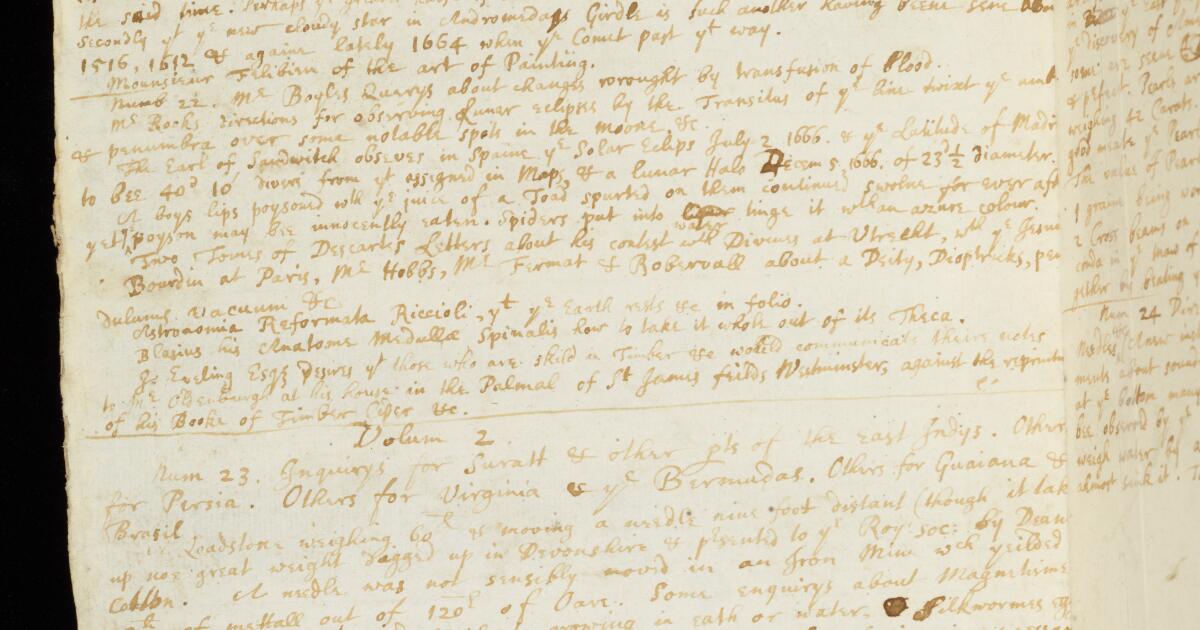 the said time. Perhaps ye
Secondly yt ye new cloudy star in Andromedas Girdle is such another having beene sene
1516, 1612 & againe lately 1664 when ye Comet past yt way.
Mounsieur Felibien of the art of Painting.
Numb 22. Mr Boyles Quærys about changes wrought by transfusion of blood.
Mr Rooks directions for observing Lunar eclipses by the Transitus of ye line twixt ye
& penumbra over some notable spots in the moone, &c.
The Earl of Sandwitch observes in Spaine ye Solar Eclips July 2 1666. & ye Latitude of Madr
to bee 40d 10' divers from yt assigned in Maps, & a lunar Halo Decem 5 1666. of 23d½ diameter.
A boys lips poysoned wth ye juice of a Toad spurted on them continued swolne for ever aft
yet poyson may bee innocently eaten. Spiders put into water tinge it wth an azure colour.
Two Tomes of Descarts Letters about his contest wth Divines at Utrecht, wth ye Jesui
Bourdin at Paris, Mr Hobbs, Mr Fermat & Robervall about a Deity, Dioptricks, pen
dulums, vacuum &c
Astronomia Reformata Riccioli, yt ye Earth rests &c in folio.
Blasius his Anatome Medullæ Spinalis how to take it whole out of its Theca.
Jo Eveling Esqr desires yt those who are skild in Timber &c would communicate theire notes
to Mr Oldenburgh at his house in the Palmal of St James feilds Westminster, against the reprintin
of his Booke of Timber Cider &c.
Volum 2.
Num 23. Inquirys for Suratt & other pts of the east Indys. Other
for Persia. Others for Virginia & ye Bermudas. Others for Guaiana &
Brasil
A Loadstone weighing 60 moving a needle nine foot distant (though it tak
up noe great weight dagged up in Devonshire & psented to ye Roy: Soc: by Dean
Cotton. A needle was not sensibly moved in an Iron Mine wch yeilded
of mettall out of 120l of Oare. Some enquirys about Magnetisme
growing in eath or water. Silkwormes
ye discovery of
some are seene
& perfect. Pearls
weighing 42 Carots
good meate ye
The value of
1 graine being
2 Cross beams on
Num 24
Needles
ments about
at ye bottom
bee observed by ye
weigh water by a
almost sink it.